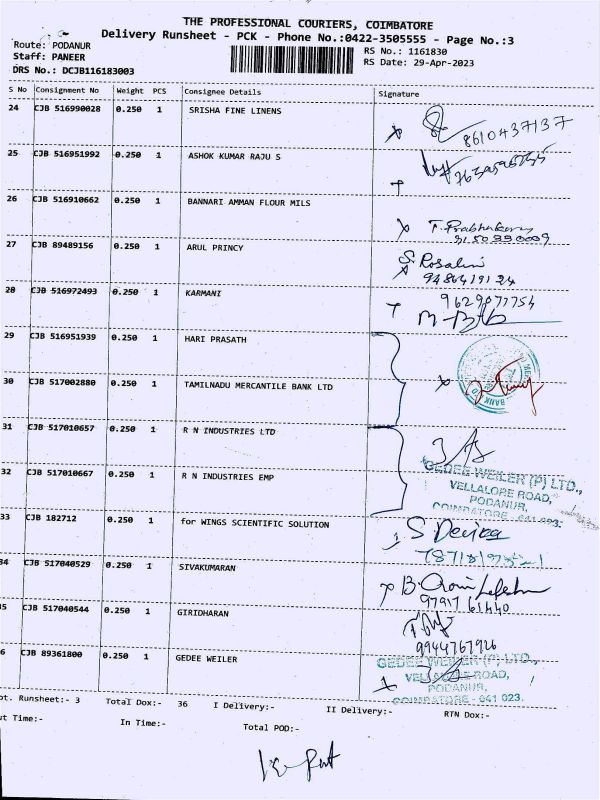 THE PROFESSIONAL COURIERS, COIMBATORE
Delivery Runsheet - PCK - Phone No.:0422-3505555 - Page No.:3
Route: PODANUR
RS No.: 1161830
Staff: PANEER
RS Date: 29-Apr-2023
DRS No.: DCJB116183003
S No Consignment No Weight PCS Consignee Details Signature
24 CJB 516990028 0.250 1 SRISHA FINE LINENS
8610437137
25 CJB 516951992 0.250 1 ASHOK KUMAR RAJU S
26 CJB 516910662 0.250 1 BANNARI AMMAN FLOUR MILS
T. Prabhakaran
27 CJB 89489156 0.250 1 ARUL PRINCY
S. Rosalin
9486419124
28 CJB 516972493 0.250 1 KARMANI
9629071754
29 CJB 516951939 0.250 1 HARI PRASATH
30 CJB 517002880 0.250 1 TAMILNADU MERCANTILE BANK LTD
BANK
31 CJB 517010657 0.250 1 R N INDUSTRIES LTD
GEDEE WEILER (P) LTD.,
VELLALORE ROAD,
PODANUR,
COIMBATORE - 641 023.
32 CJB 517010667 0.250 1 R N INDUSTRIES EMP
33 CJB 182712 0.250 1 for WINGS SCIENTIFIC SOLUTION
34 CJB 517040529 0.250 1 SIVAKUMARAN
97917 61440
5 CJB 517040544 0.250 1 GIRIDHARAN
9944767926
6 CJB 89361800 0.250 1 GEDEE WEILER
GEDEE WEILER (P) LTD.,
VELLALORE ROAD,
PODANUR,
COIMBATORE - 641 023.
pt. Runsheet:- 3 Total Dox:- 36 I Delivery:- II Delivery:- RTN Dox:-
ut Time:- In Time:- Total POD:-